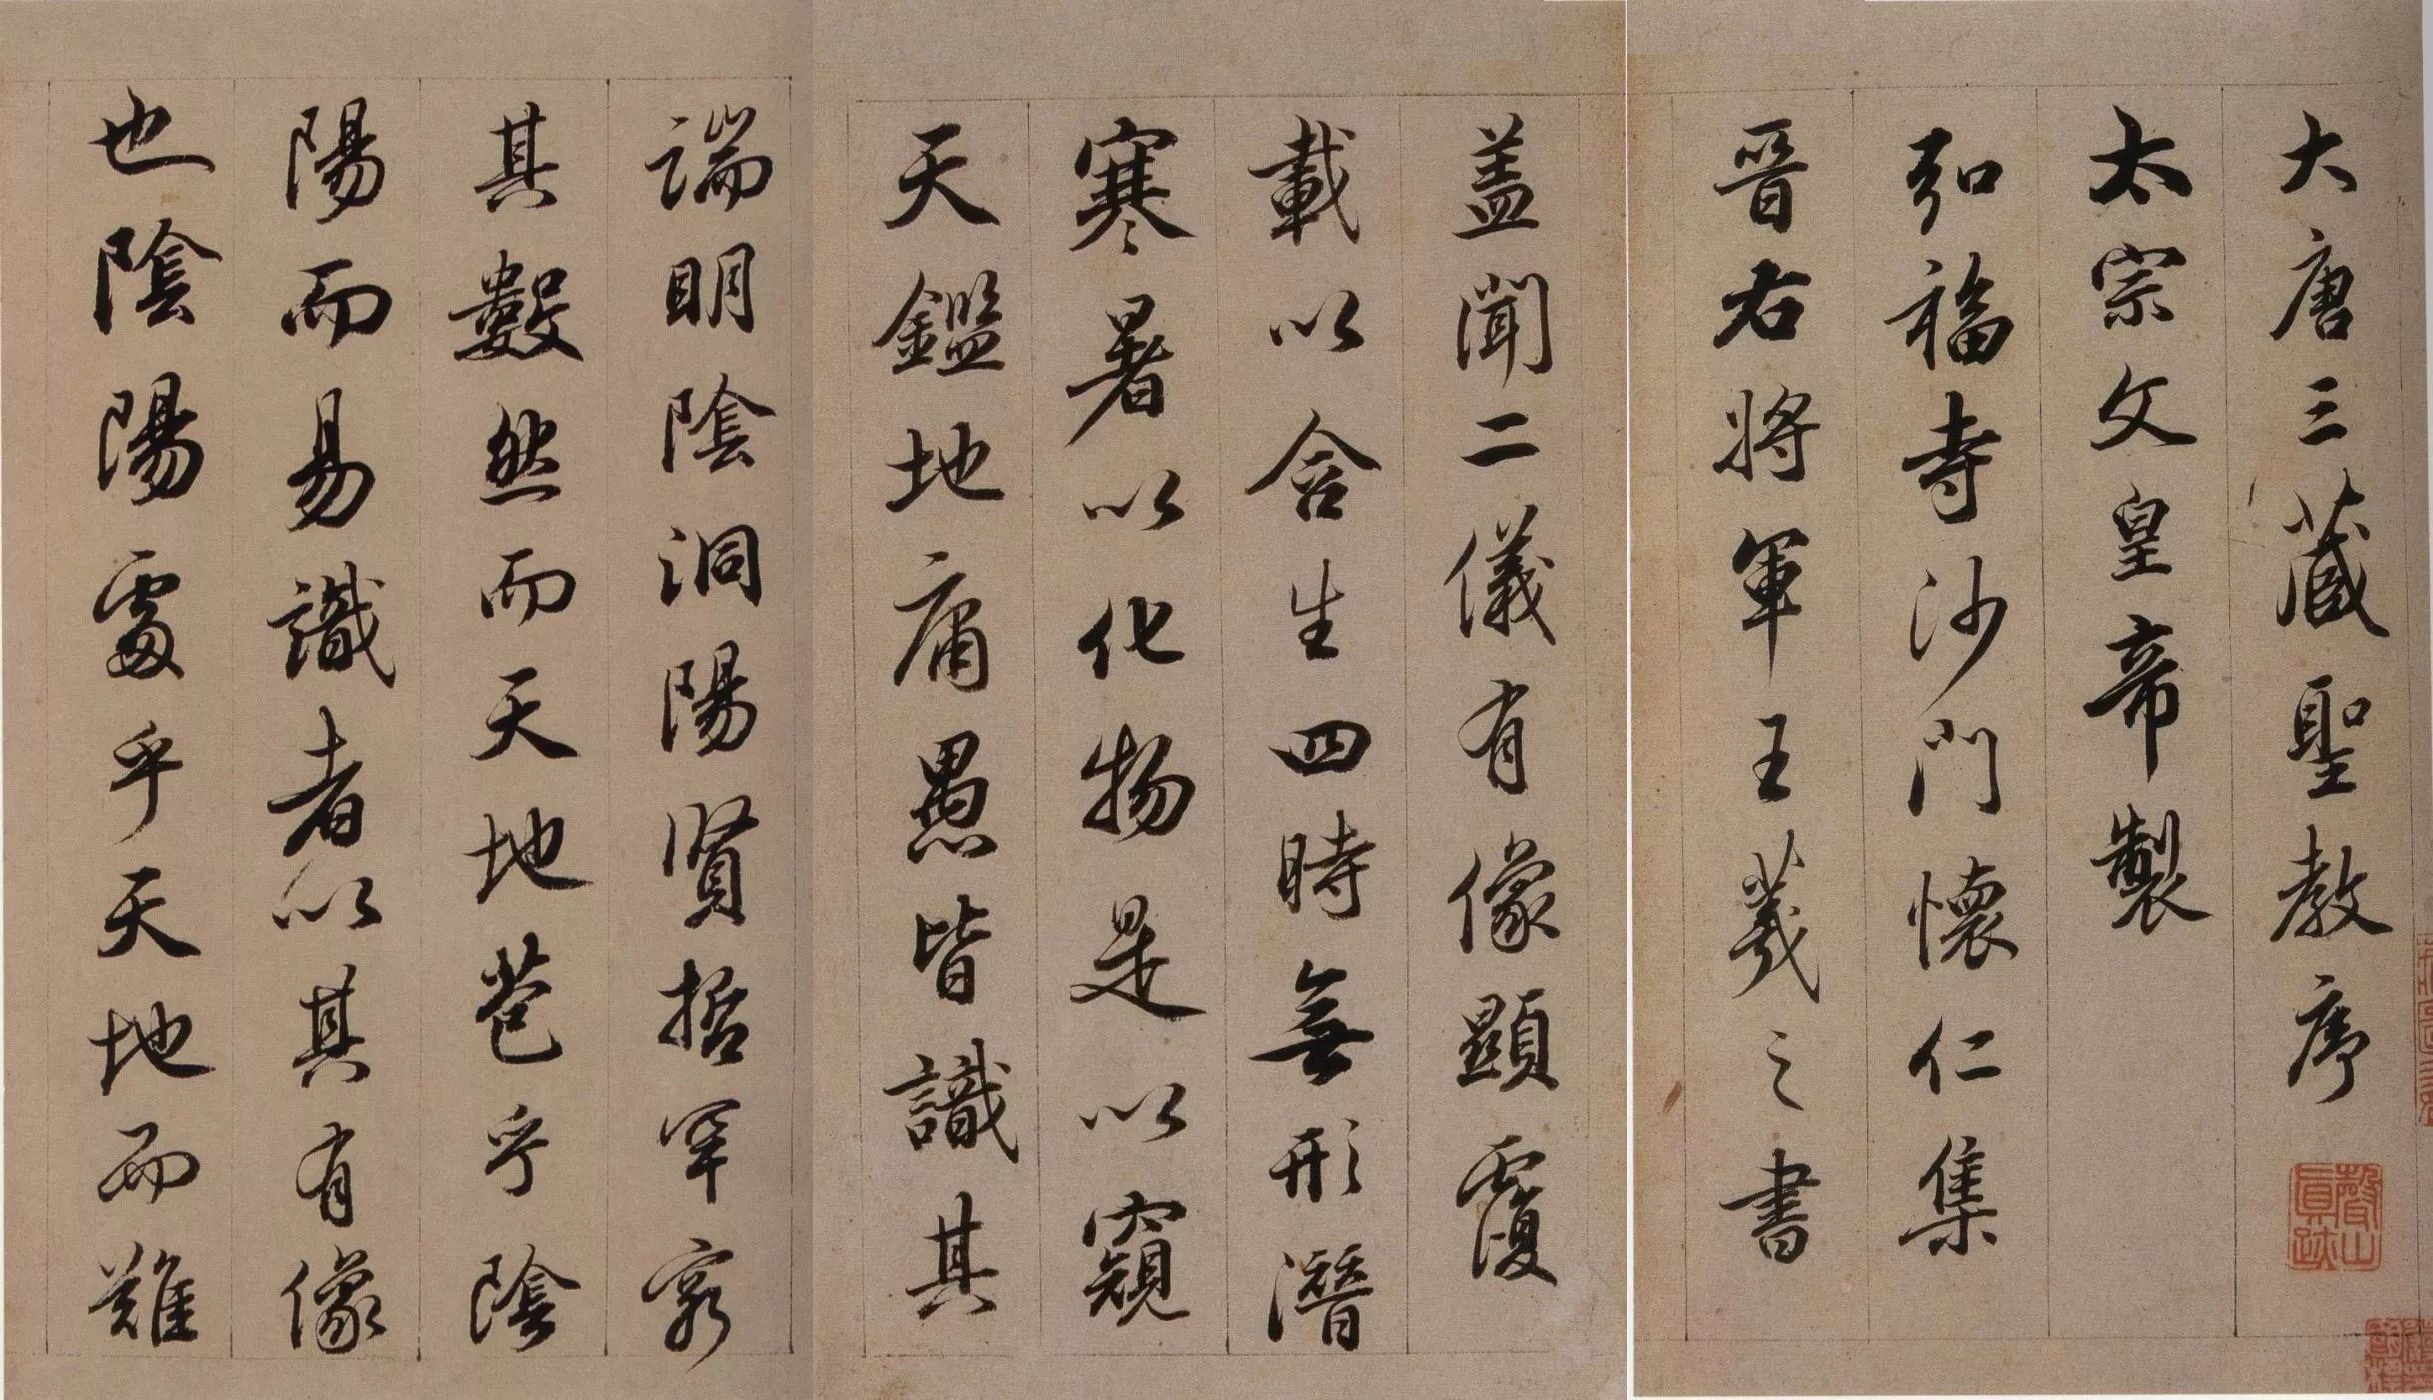 大唐三藏聖教序
太宗文皇帝製
弘福寺沙門懷仁集
晉右將軍王羲之書
蓋聞二儀有像顯覆
載以含生四時無形潛
寒暑以化物是以窺
天鑑地庸愚皆識其
端明陰洞陽賢哲罕窮
其數然而天地苞乎陰
陽而易識者以其有像
也陰陽處乎天地而難